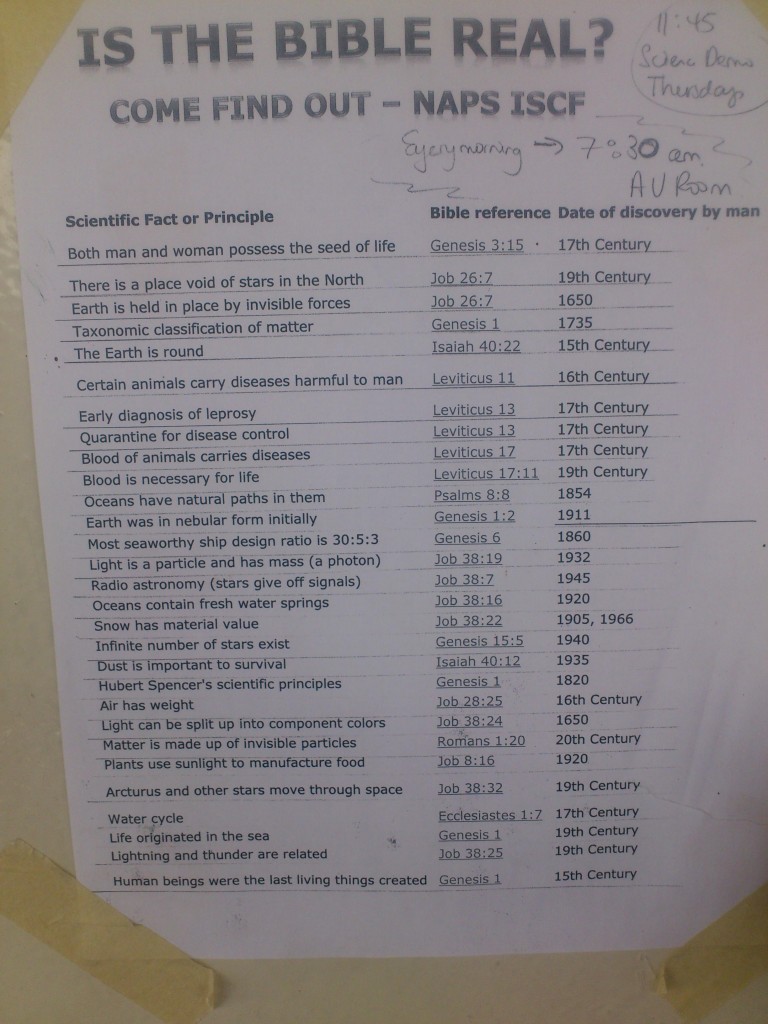 IS THE BIBLE REAL?
11:45
Science Demo
Thursday
COME FIND OUT – NAPS ISCF
Every morning → 7:30 am
AV Room
Scientific Fact or Principle Bible reference Date of discovery by man
Both man and woman possess the seed of life Genesis 3:15 17th Century
There is a place void of stars in the North Job 26:7 19th Century
Earth is held in place by invisible forces Job 26:7 1650
Taxonomic classification of matter Genesis 1 1735
The Earth is round Isaiah 40:22 15th Century
Certain animals carry diseases harmful to man Leviticus 11 16th Century
Early diagnosis of leprosy Leviticus 13 17th Century
Quarantine for disease control Leviticus 13 17th Century
Blood of animals carries diseases Leviticus 17 17th Century
Blood is necessary for life Leviticus 17:11 19th Century
Oceans have natural paths in them Psalms 8:8 1854
Earth was in nebular form initially Genesis 1:2 1911
Most seaworthy ship design ratio is 30:5:3 Genesis 6 1860
Light is a particle and has mass (a photon) Job 38:19 1932
Radio astronomy (stars give off signals) Job 38:7 1945
Oceans contain fresh water springs Job 38:16 1920
Snow has material value Job 38:22 1905, 1966
Infinite number of stars exist Genesis 15:5 1940
Dust is important to survival Isaiah 40:12 1935
Hubert Spencer's scientific principles Genesis 1 1820
Air has weight Job 28:25 16th Century
Light can be split up into component colors Job 38:24 1650
Matter is made up of invisible particles Romans 1:20 20th Century
Plants use sunlight to manufacture food Job 8:16 1920
Arcturus and other stars move through space Job 38:32 19th Century
Water cycle Ecclesiastes 1:7 17th Century
Life originated in the sea Genesis 1 19th Century
Lightning and thunder are related Job 38:25 19th Century
Human beings were the last living things created Genesis 1 15th Century